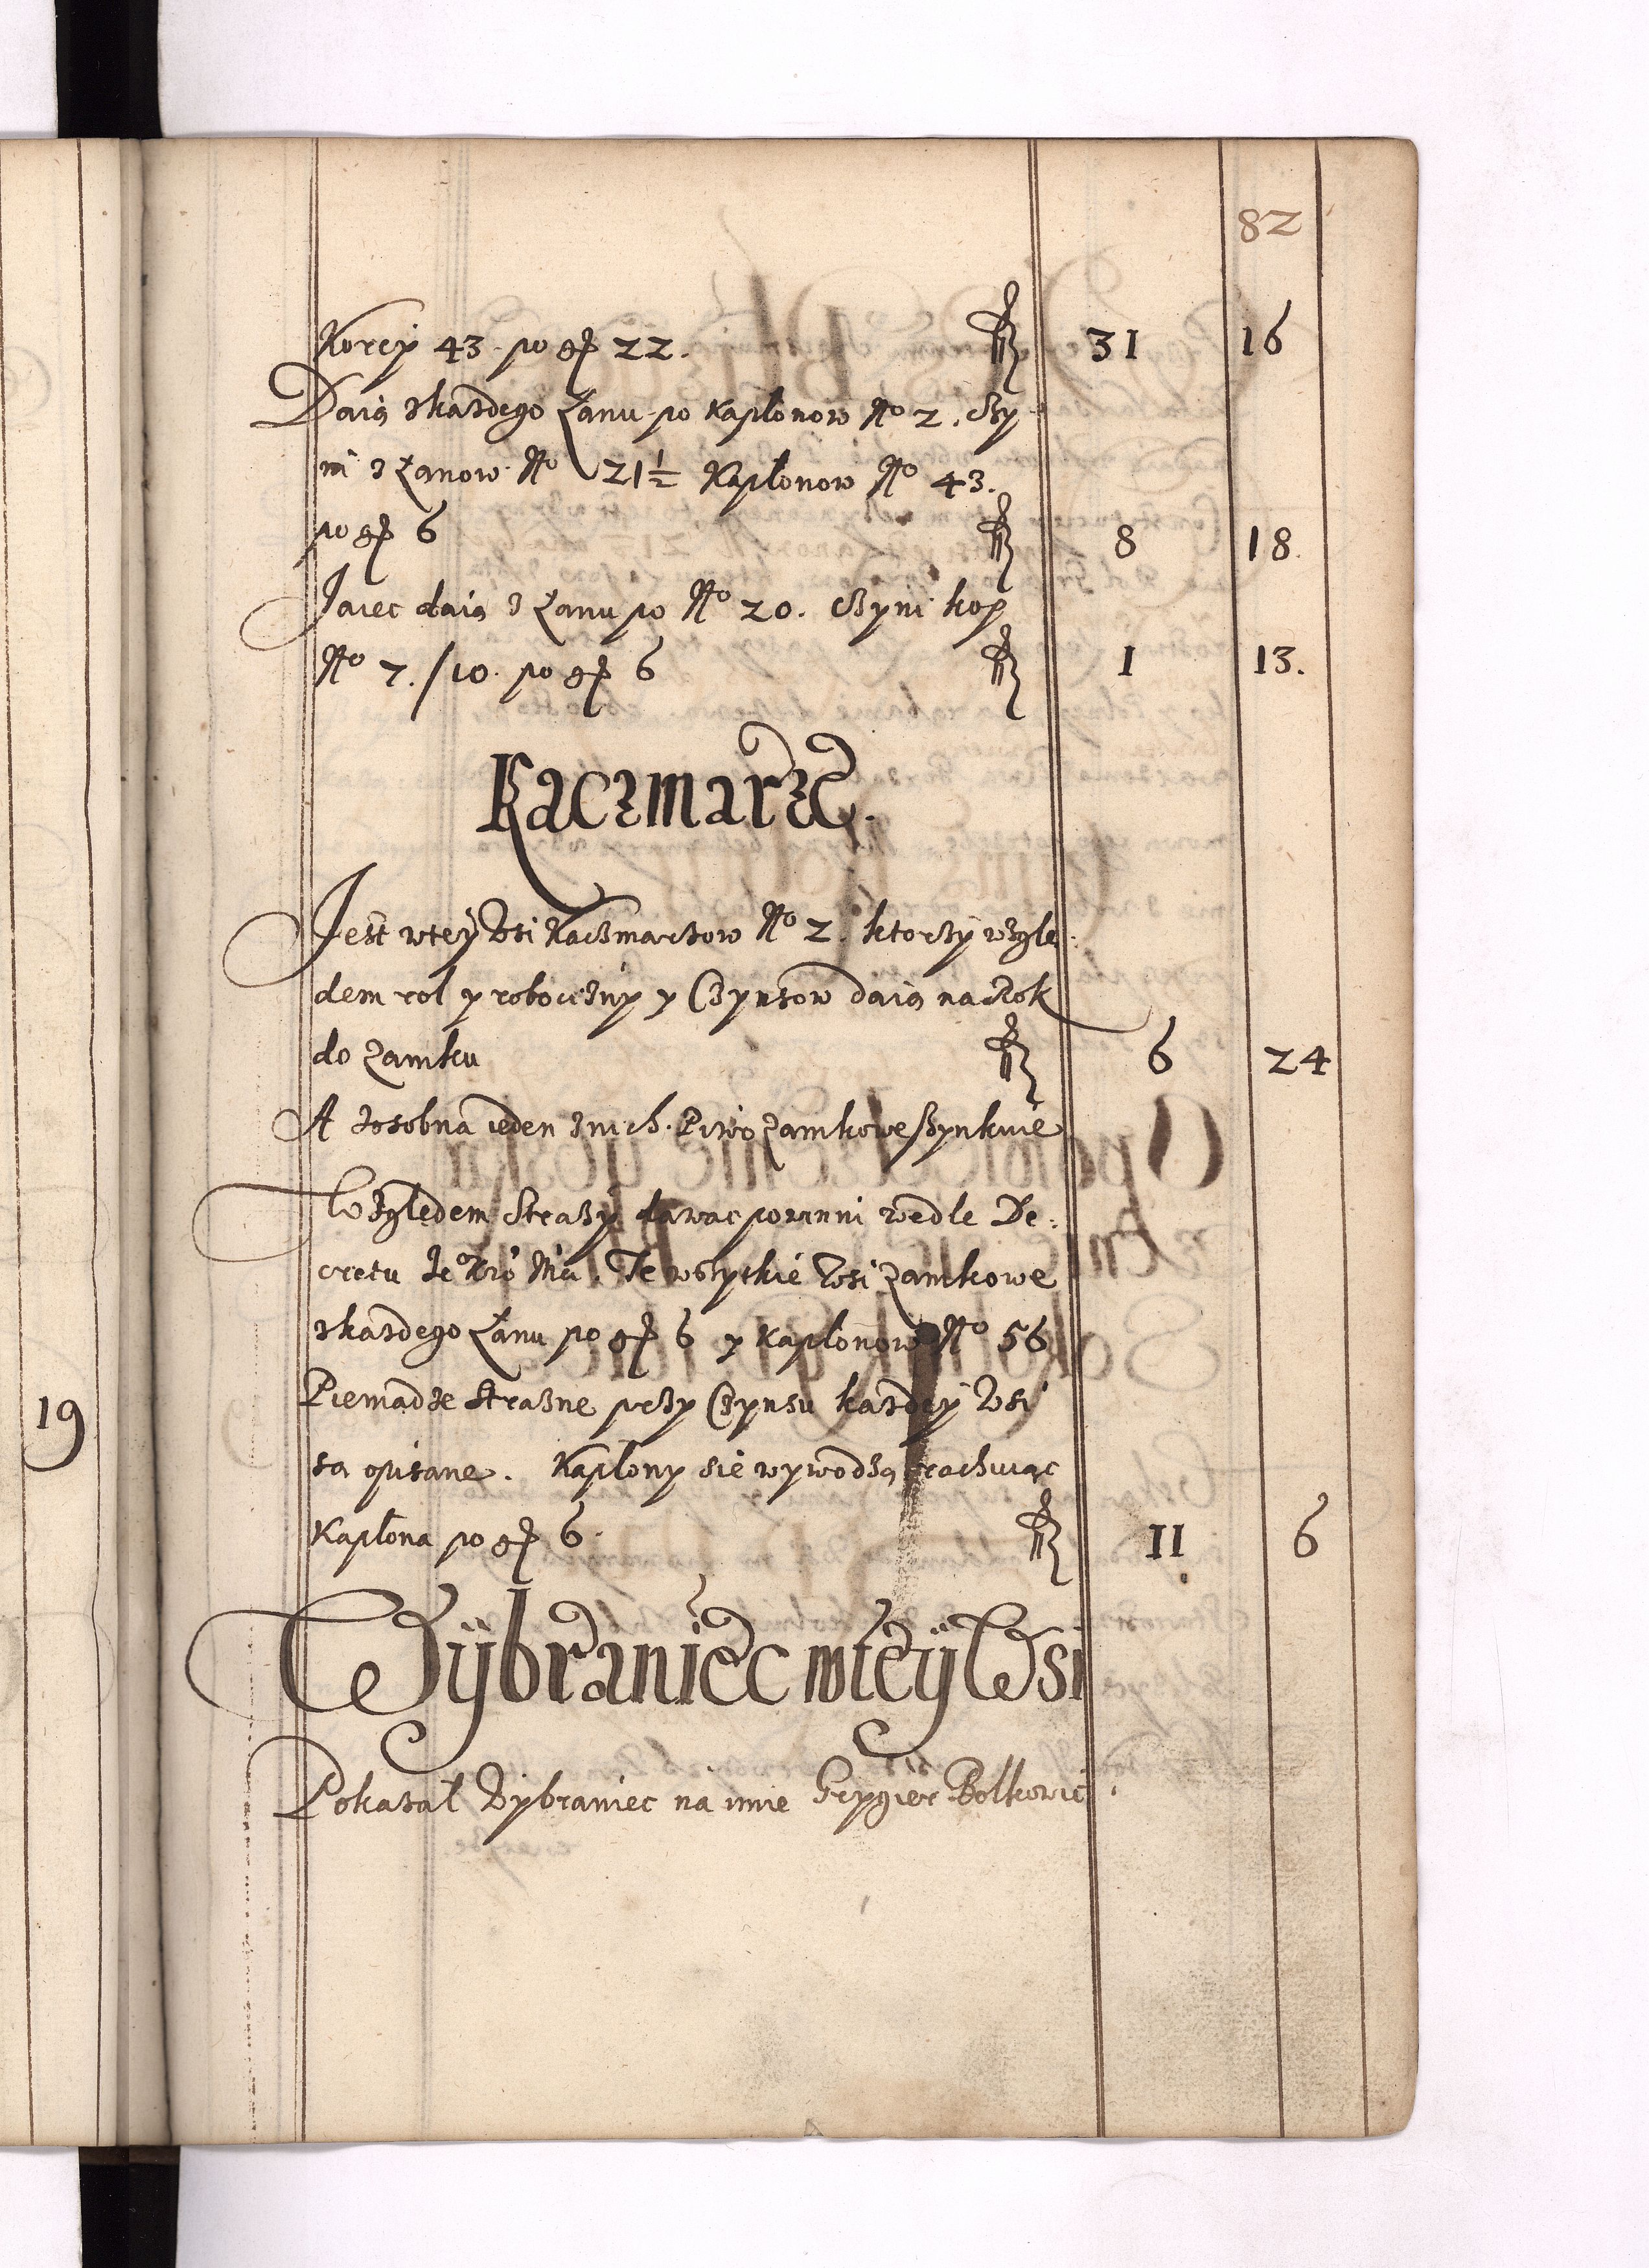 82
Korcy 43 po gr 22. fl 31 16
Daią zkazdego Łanu po kapłonow No 2. Czy
ni z Łanow No 21½ Kapłonow No 43.
po gr 6 fl 8 18.
Jaiec daią z Łanu po No 20. Czyni kop
No 7./10. po gr 6 fl 1 13.
Kaczmarze.
Jest wtey Wsi Kaczmarzow No 2. ktorzy wzglę
dem rol y roboczizny y Czynszow daią na Rok
do Zamku fl 6 24
A zosobna ieden znich Piwo Zamkowe szynkuie
Względem Strazy dawac powinni wedle De:
cretu Je Kro Mci. Te wszytkie Wsi Zamkowe
zkazdego Łanu po gr 6 y kapłonow No 56
Pieniadze strazne przy Czynszu kazdey Wsi
sa opisane. Kapłony sie wywodzą rachuiąc
Kapłona po gr 6. fl 11 6
Wÿbraniec wteÿ Wsi
Pokazał Wybraniec na imie Grygier Bolkowic
19